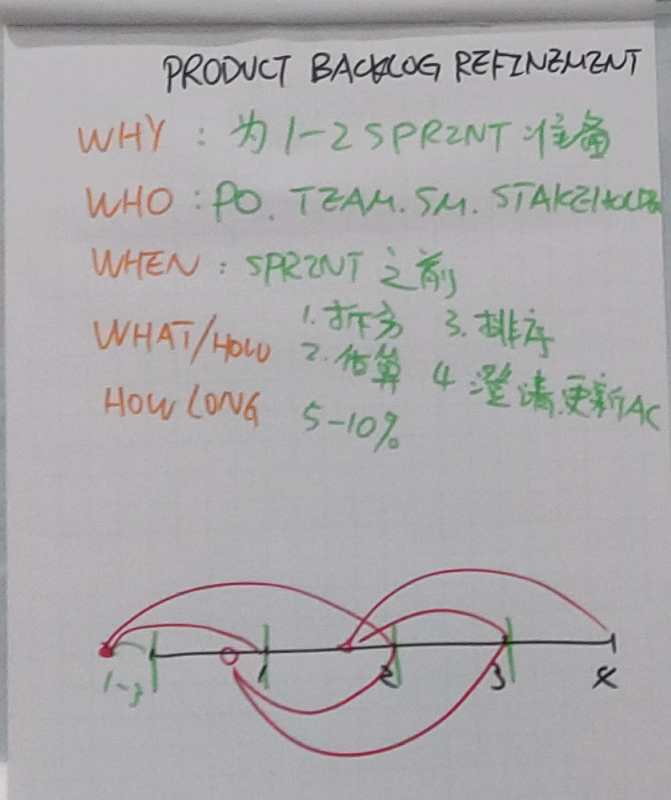 PRODUCT BACKLOG REFINEMENT
WHY : 为 1-2 SPRINT 准备
WHO : PO. TEAM. SM. STAKEHOLDER
WHEN : SPRINT 之前
WHAT/HOW 1. 拆分 3. 排序
2. 估算 4 澄清.更新AC
HOW LONG 5-10%
1 2 3 4